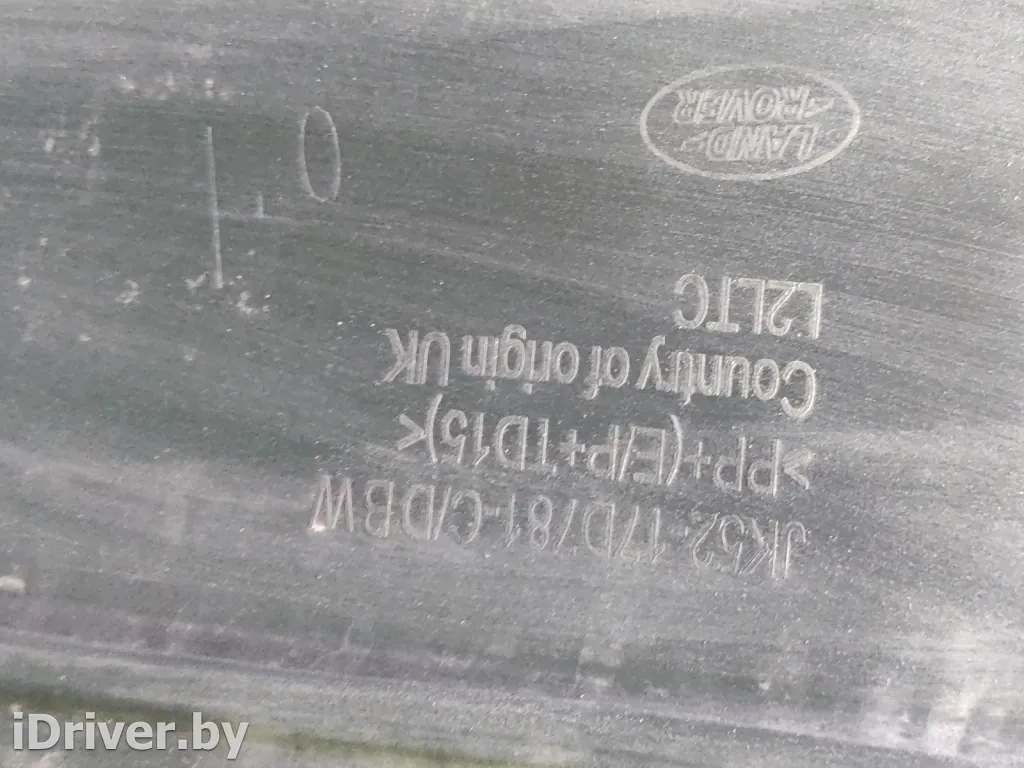 JK52-17D781-C/DBW
>PP+(E/P+TD15)<
Country of origin UK
L2LTC
LAND
ROVER
iDriver.by